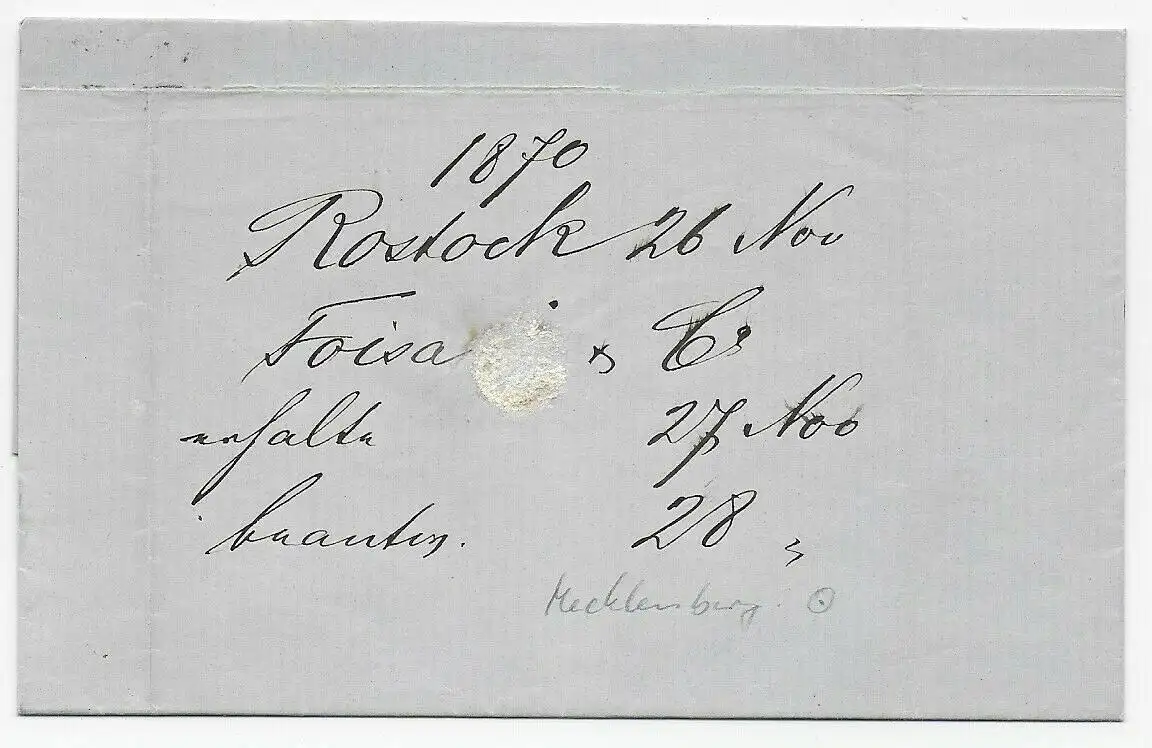 1870
Rostock 26 Nov
& Co
erhalte 27 Nov
beantw. 28 "
Mecklenburg.